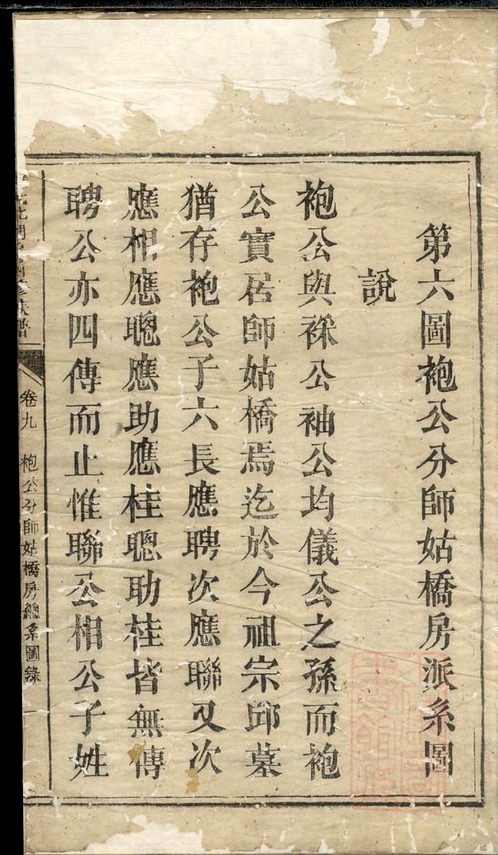 第六圖袍公分師姑橋房派系圖
說
袍公與褓公袖公均儀公之孫而袍
公實居師姑橋焉迄於今祖宗邱墓
猶存袍公子六長應聘次應聯又次
應相應聰應助應桂聰助桂皆無傳
聘公亦四傳而止惟聯公相公子姓
族譜
卷九
袍公分師姑橋房總系圖錄